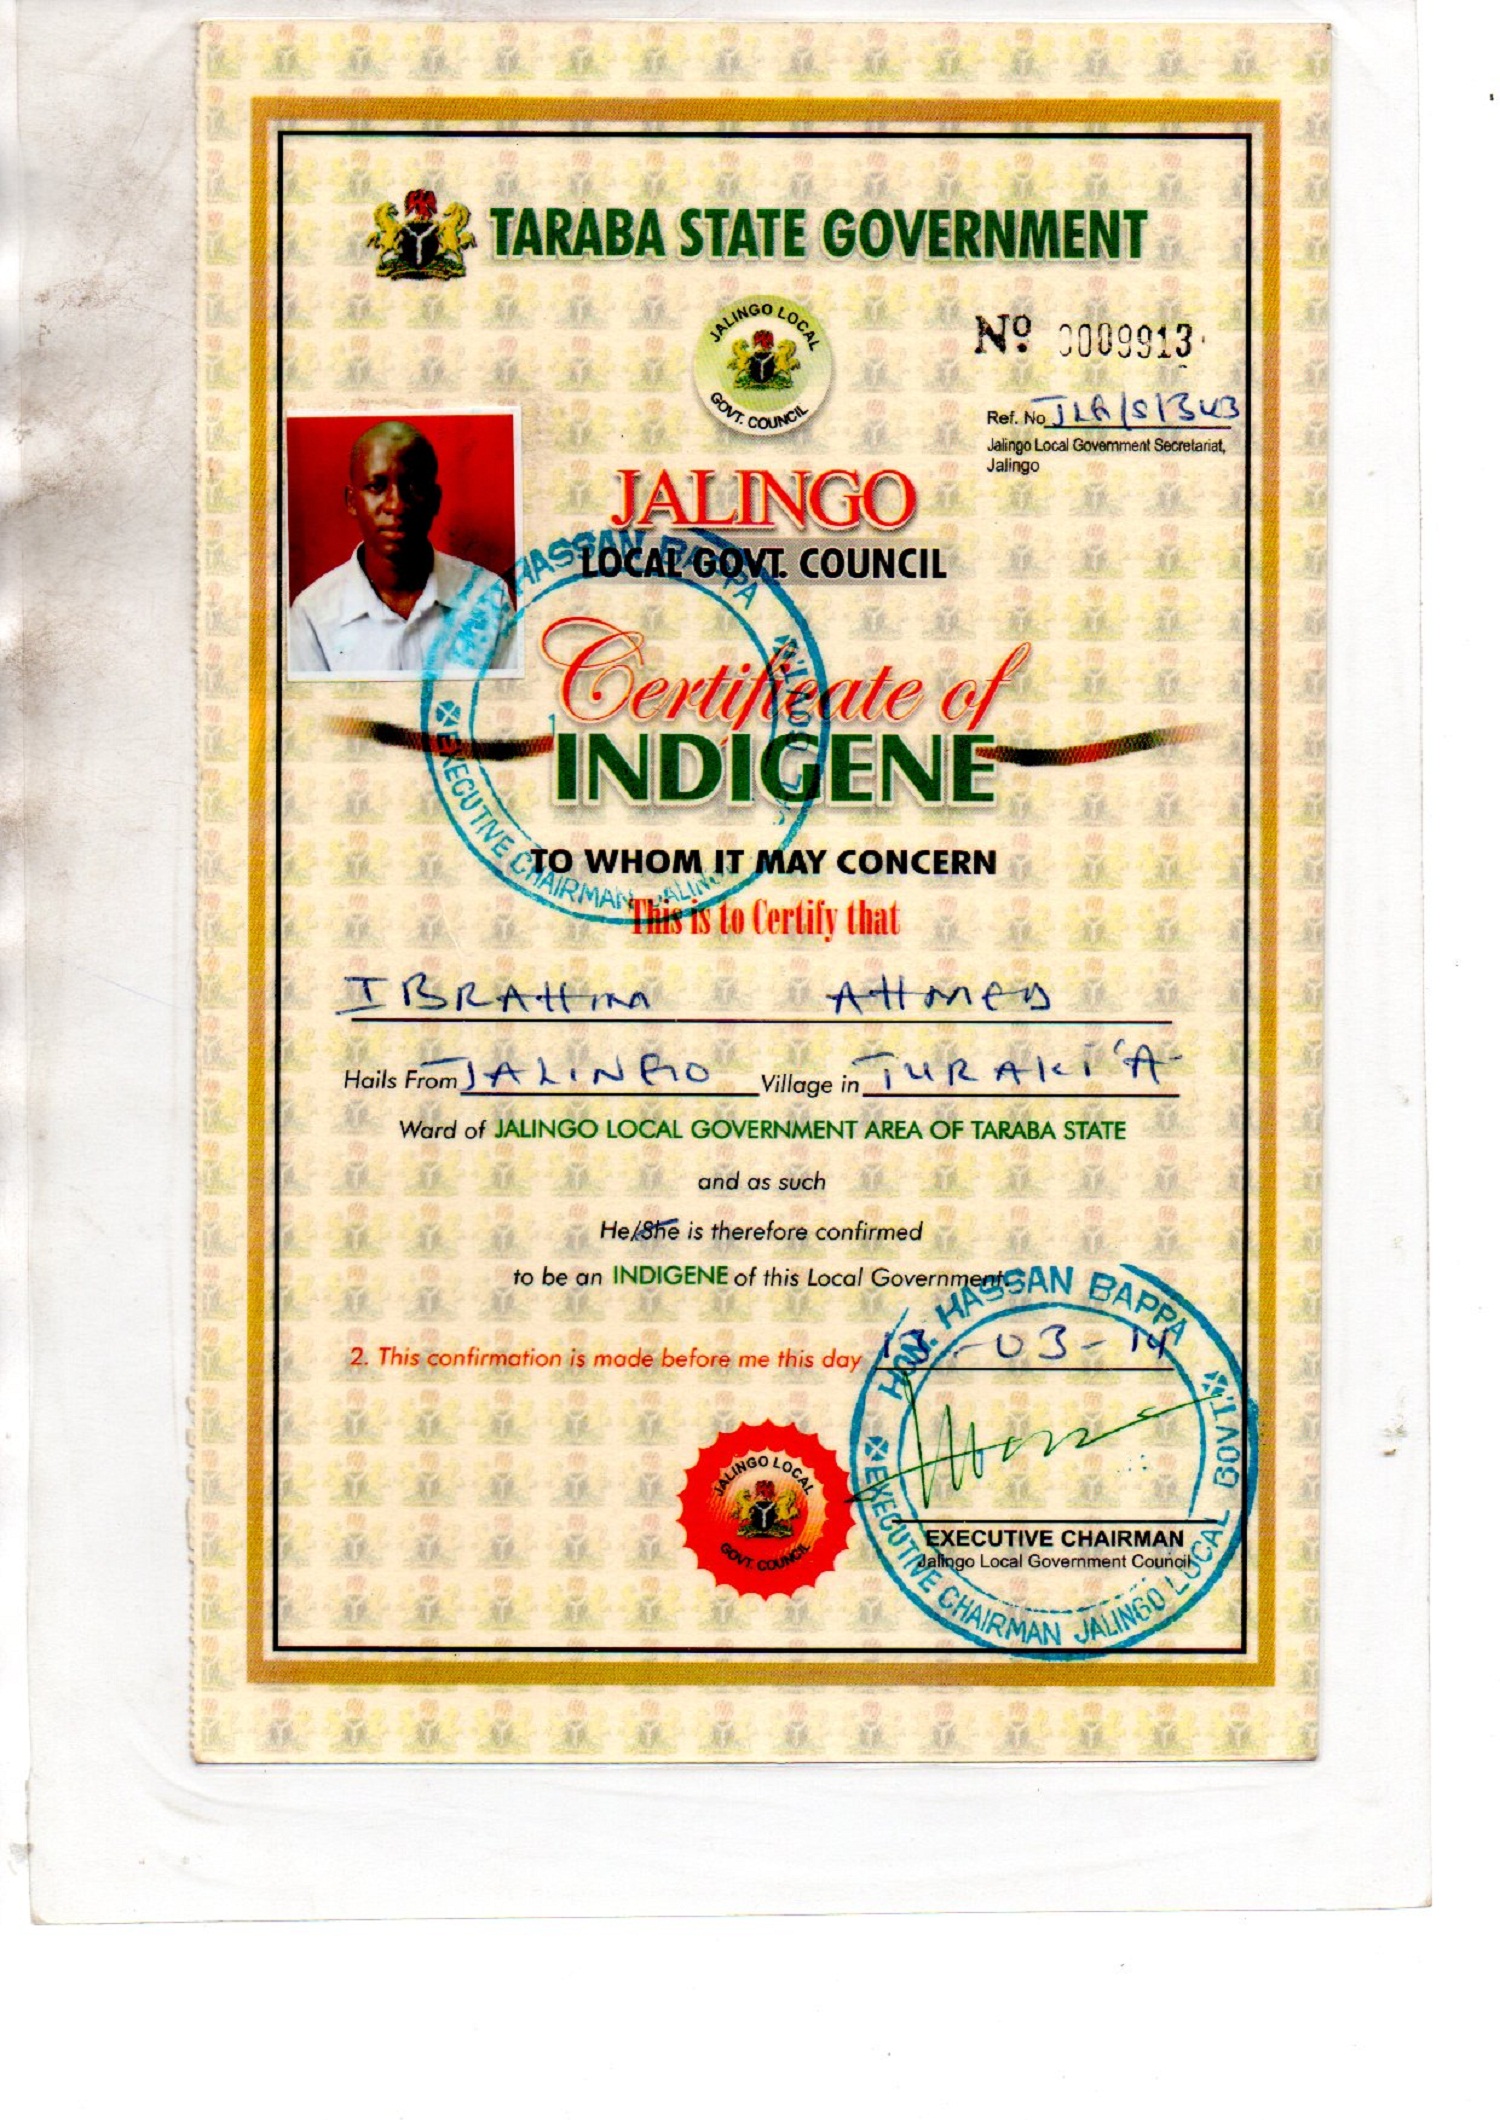 TARABA STATE GOVERNMENT
JALINGO LOCAL
GOVT. COUNCIL
Nº 0009913
Ref. No
Jalingo Local Government Secretariat,
Jalingo
JALINGO
LOCAL GOVT. COUNCIL
HASSAN BAPPA
EXECUTIVE CHAIRMAN JALINGO LOCAL GOVT.
Certificate of
INDIGENE
TO WHOM IT MAY CONCERN
This is to Certify that
IBRAHIM AHMED
Hails From JALINGO Village in TURAKI'A
Ward of JALINGO LOCAL GOVERNMENT AREA OF TARABA STATE
and as such
He/She is therefore confirmed
to be an INDIGENE of this Local Government.
2. This confirmation is made before me this day 13-03-14
HON. HASSAN BAPPA
JALINGO LOCAL
GOVT. COUNCIL
EXECUTIVE CHAIRMAN
Jalingo Local Government Council
EXECUTIVE CHAIRMAN JALINGO LOCAL GOVT.